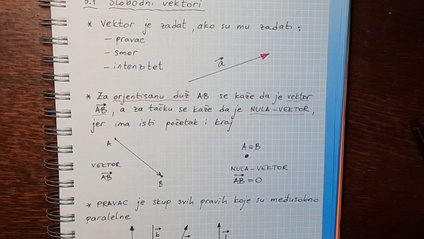 5.1 Slobodni vektori
* Vektor je zadat, ako su mu zadati:
- pravac
- smer
- intenzitet
a
* Za orjentisanu duž AB se kaže da je vektor
AB, a za tačku se kaže da je NULA-VEKTOR,
jer ima isti početak i kraj
A
B
VEKTOR
AB
A≡B
NULA-VEKTOR
AB=0
* PRAVAC je skup svih pravih koje su međusobno
paralelne
b